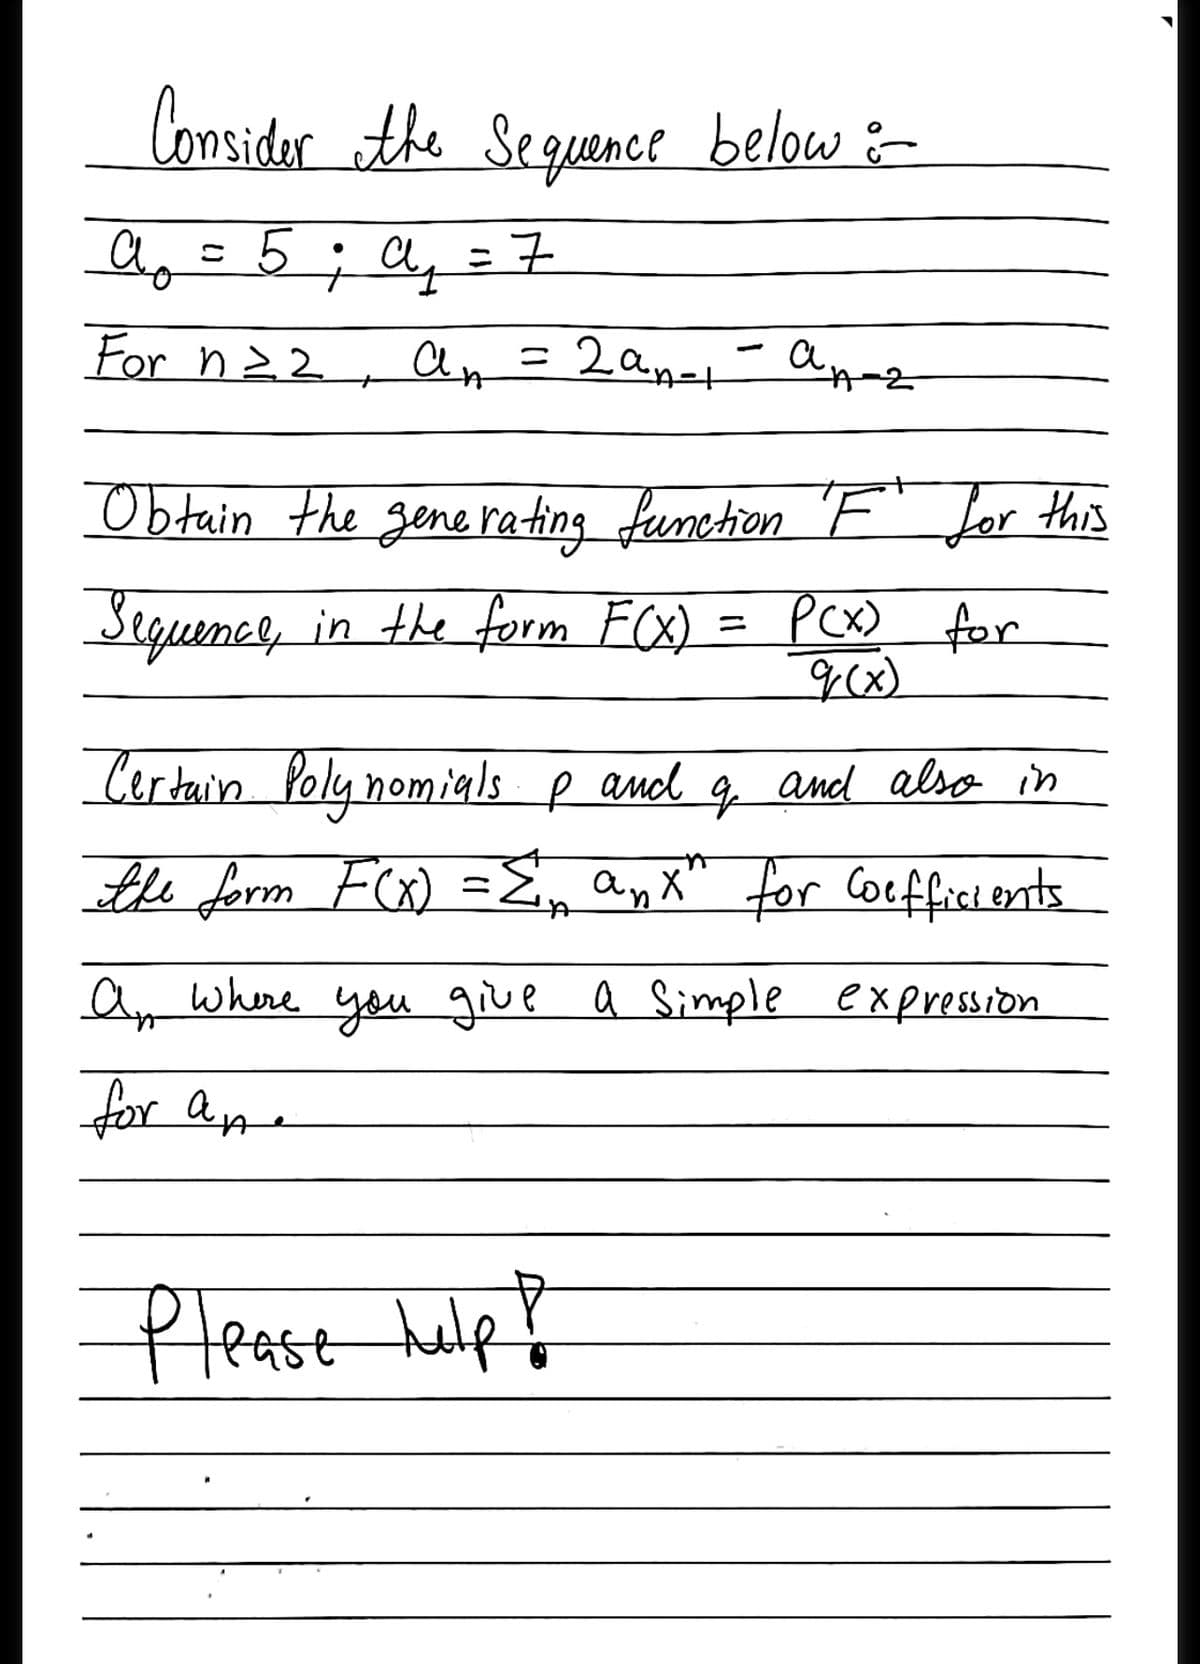 Consider the Sequence below :-
a₀ = 5 ; a₁ = 7
For n ≥ 2 , aₙ = 2aₙ₋₁ - aₙ₋₂
Obtain the generating function 'F' for this
Sequence, in the form F(x) = P(x)/q(x) for
Certain Polynomials p and q and also in
the form F(x) = Σₙ aₙxⁿ for Coefficients
aₙ where you give a Simple expression
for aₙ.
Please help!